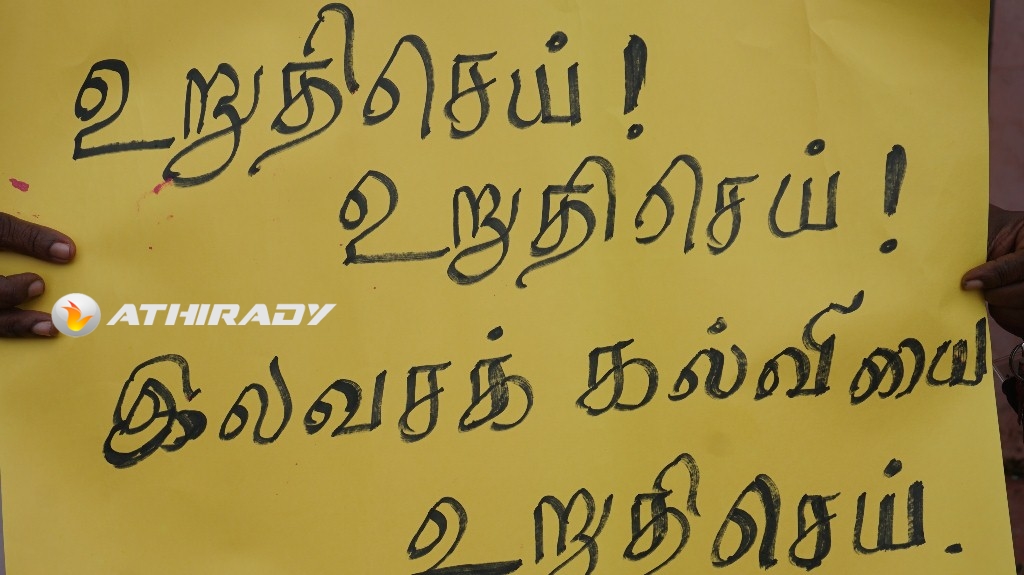 உறுதிசெய்!
உறுதிசெய்!
ATHIRADY
இலவசக் கல்வியை
உறுதிசெய்.